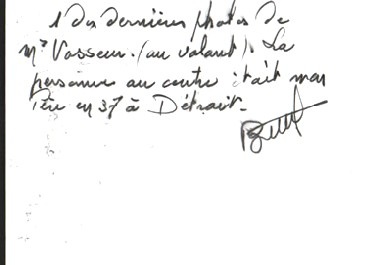 1 des dernières photos de
Mr Vasseur. (au volant). La
personne au centre était mon
Père en 37 à Détroit.